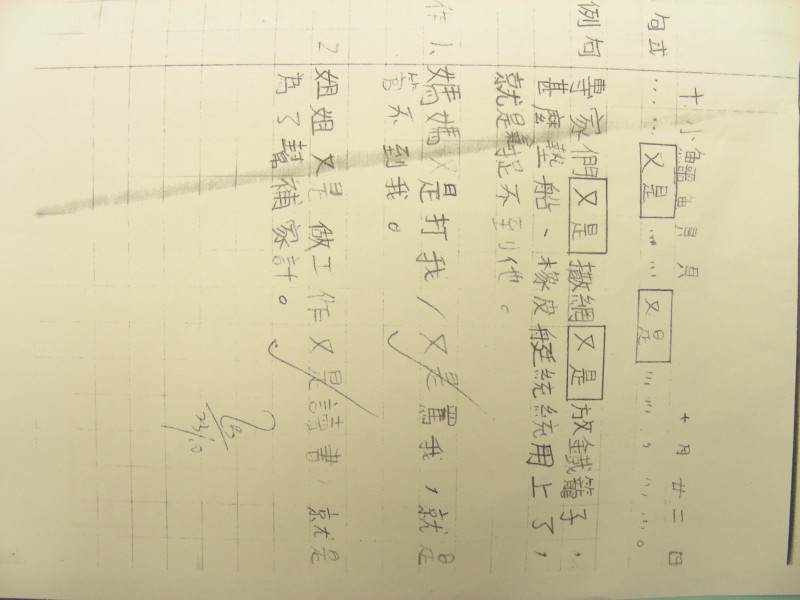 十 小鱷魚 十月廿三日
句式 ……又是……又是……，……。
例句 專家們又是撒網又是放鐵籠子，
甚麼墊船、橡皮艇統統用上了，
就是捉不到他。
作 1、媽媽又是打我，又是罵我，就是
管不到我。
2 姐姐又是做工作又是讀書，就是
為了幫補家計。
23/10